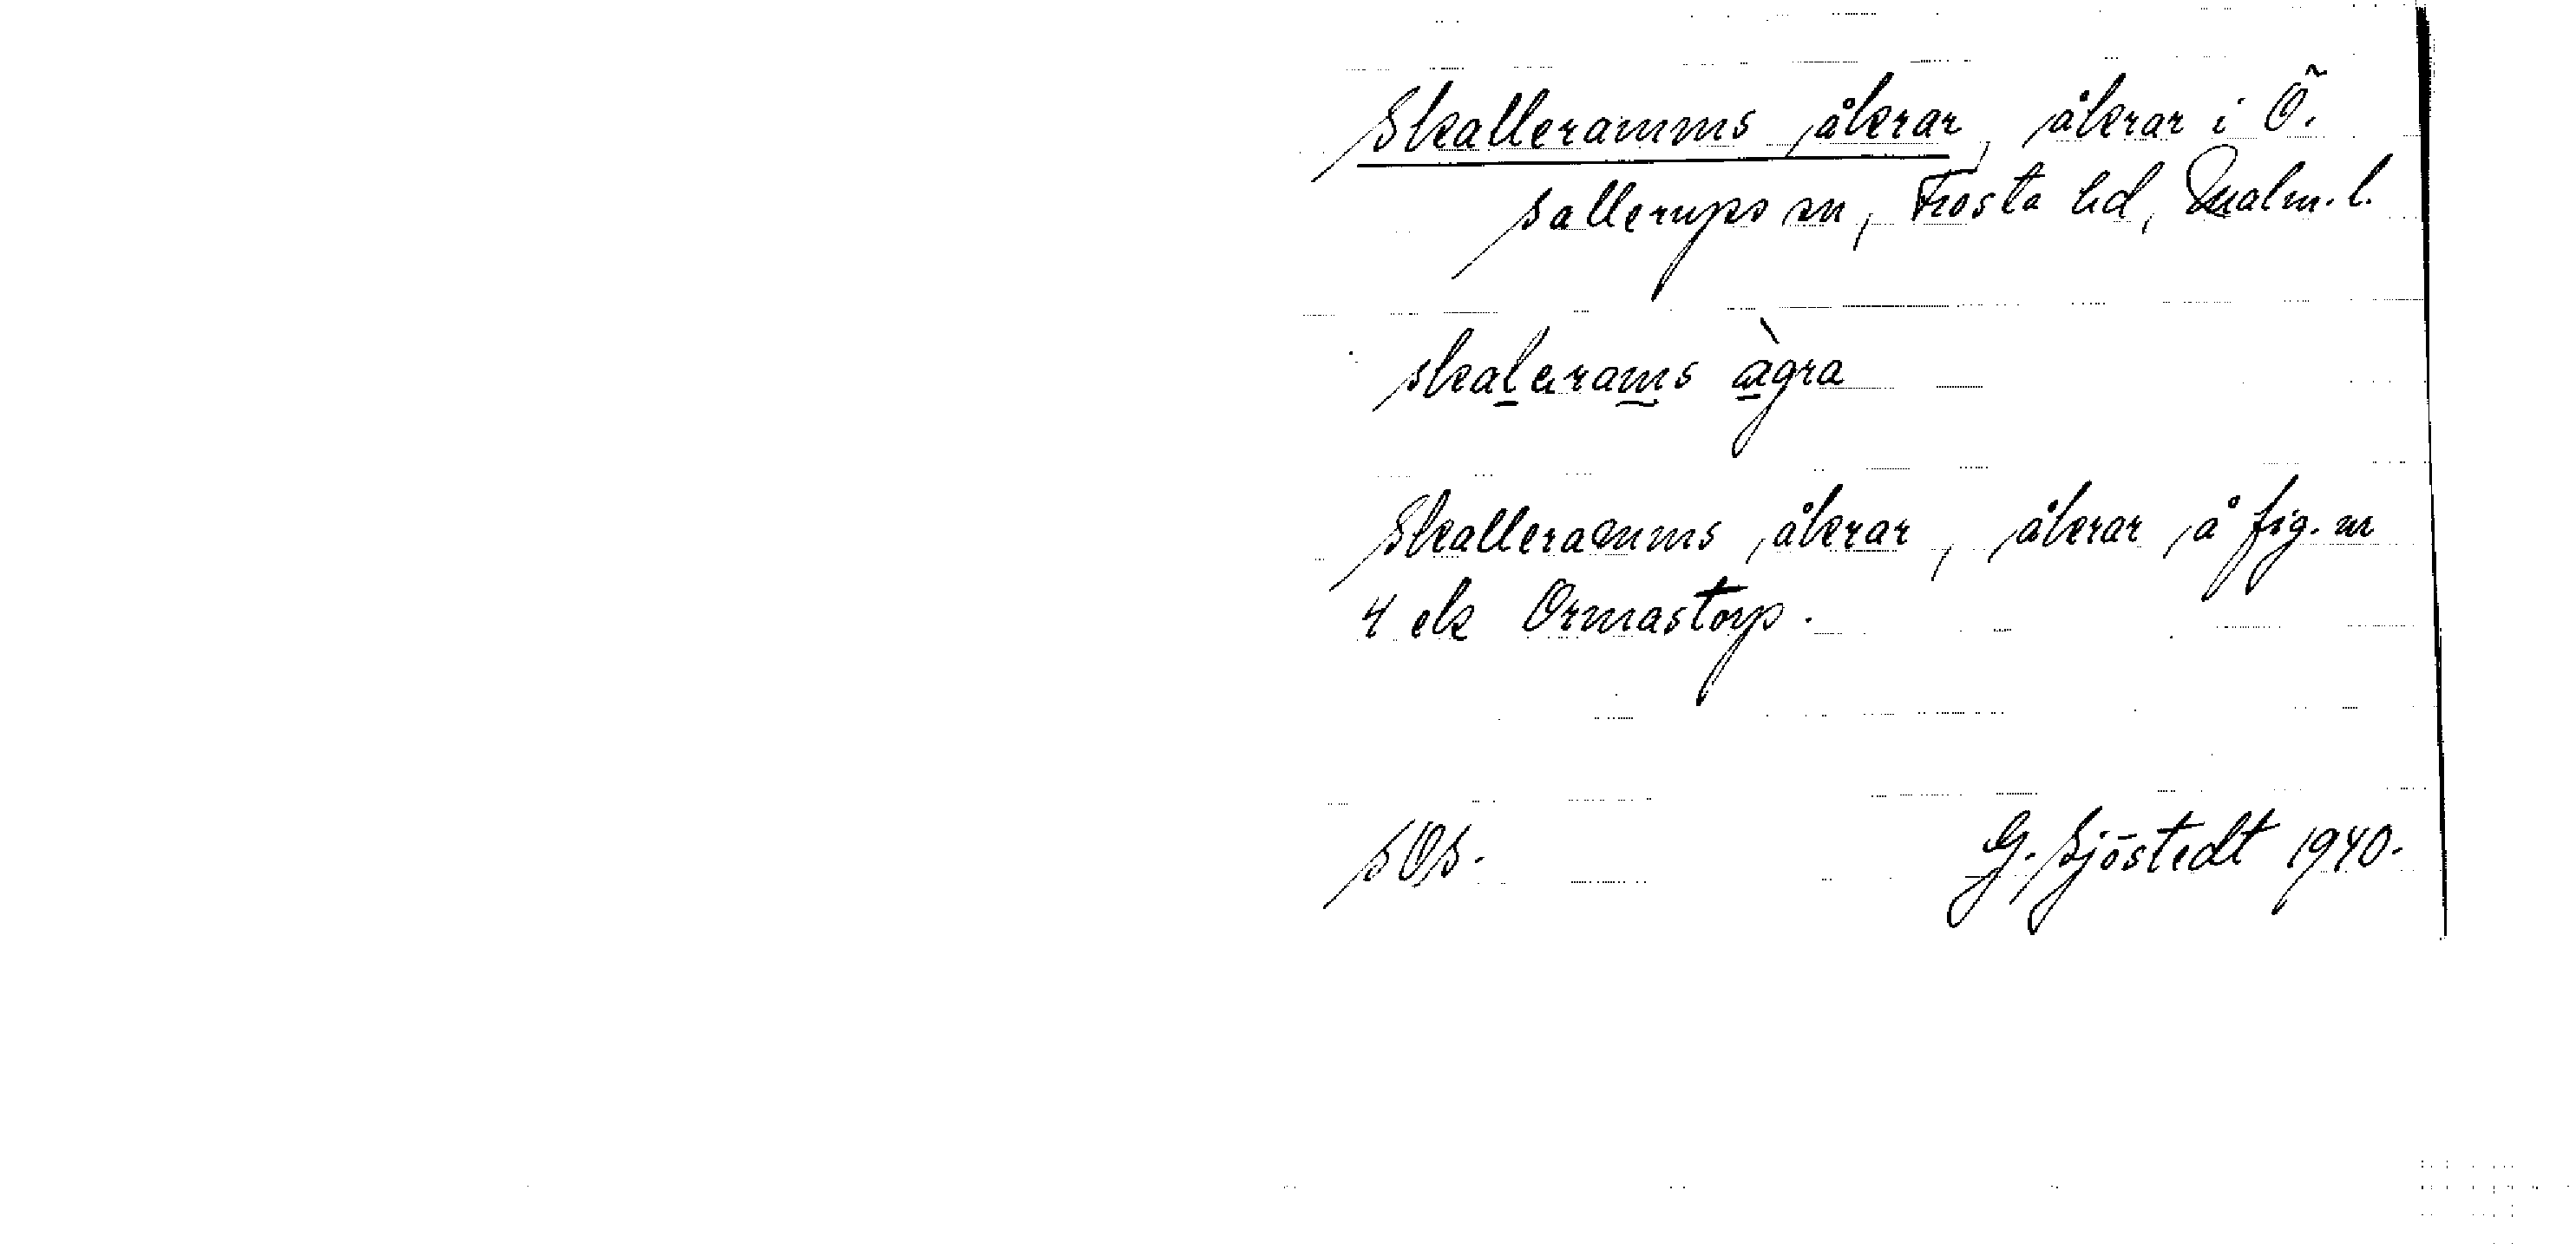 Skalleramms åkrar, åkrar i Ö.
Sallerups sn, Frosta hd, Malm. l.
skalarams ägra
Skalleramms åkrar, åkrar å fig. nr
4 ek Ormastorp.
SOS. G. Sjöstedt 1940.